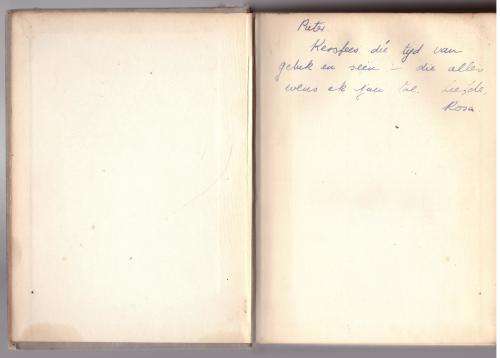 Pieter
Kersfees die tyd van
geluk en seën – die alles
wens ek jou toe. Liefde,
Rosa